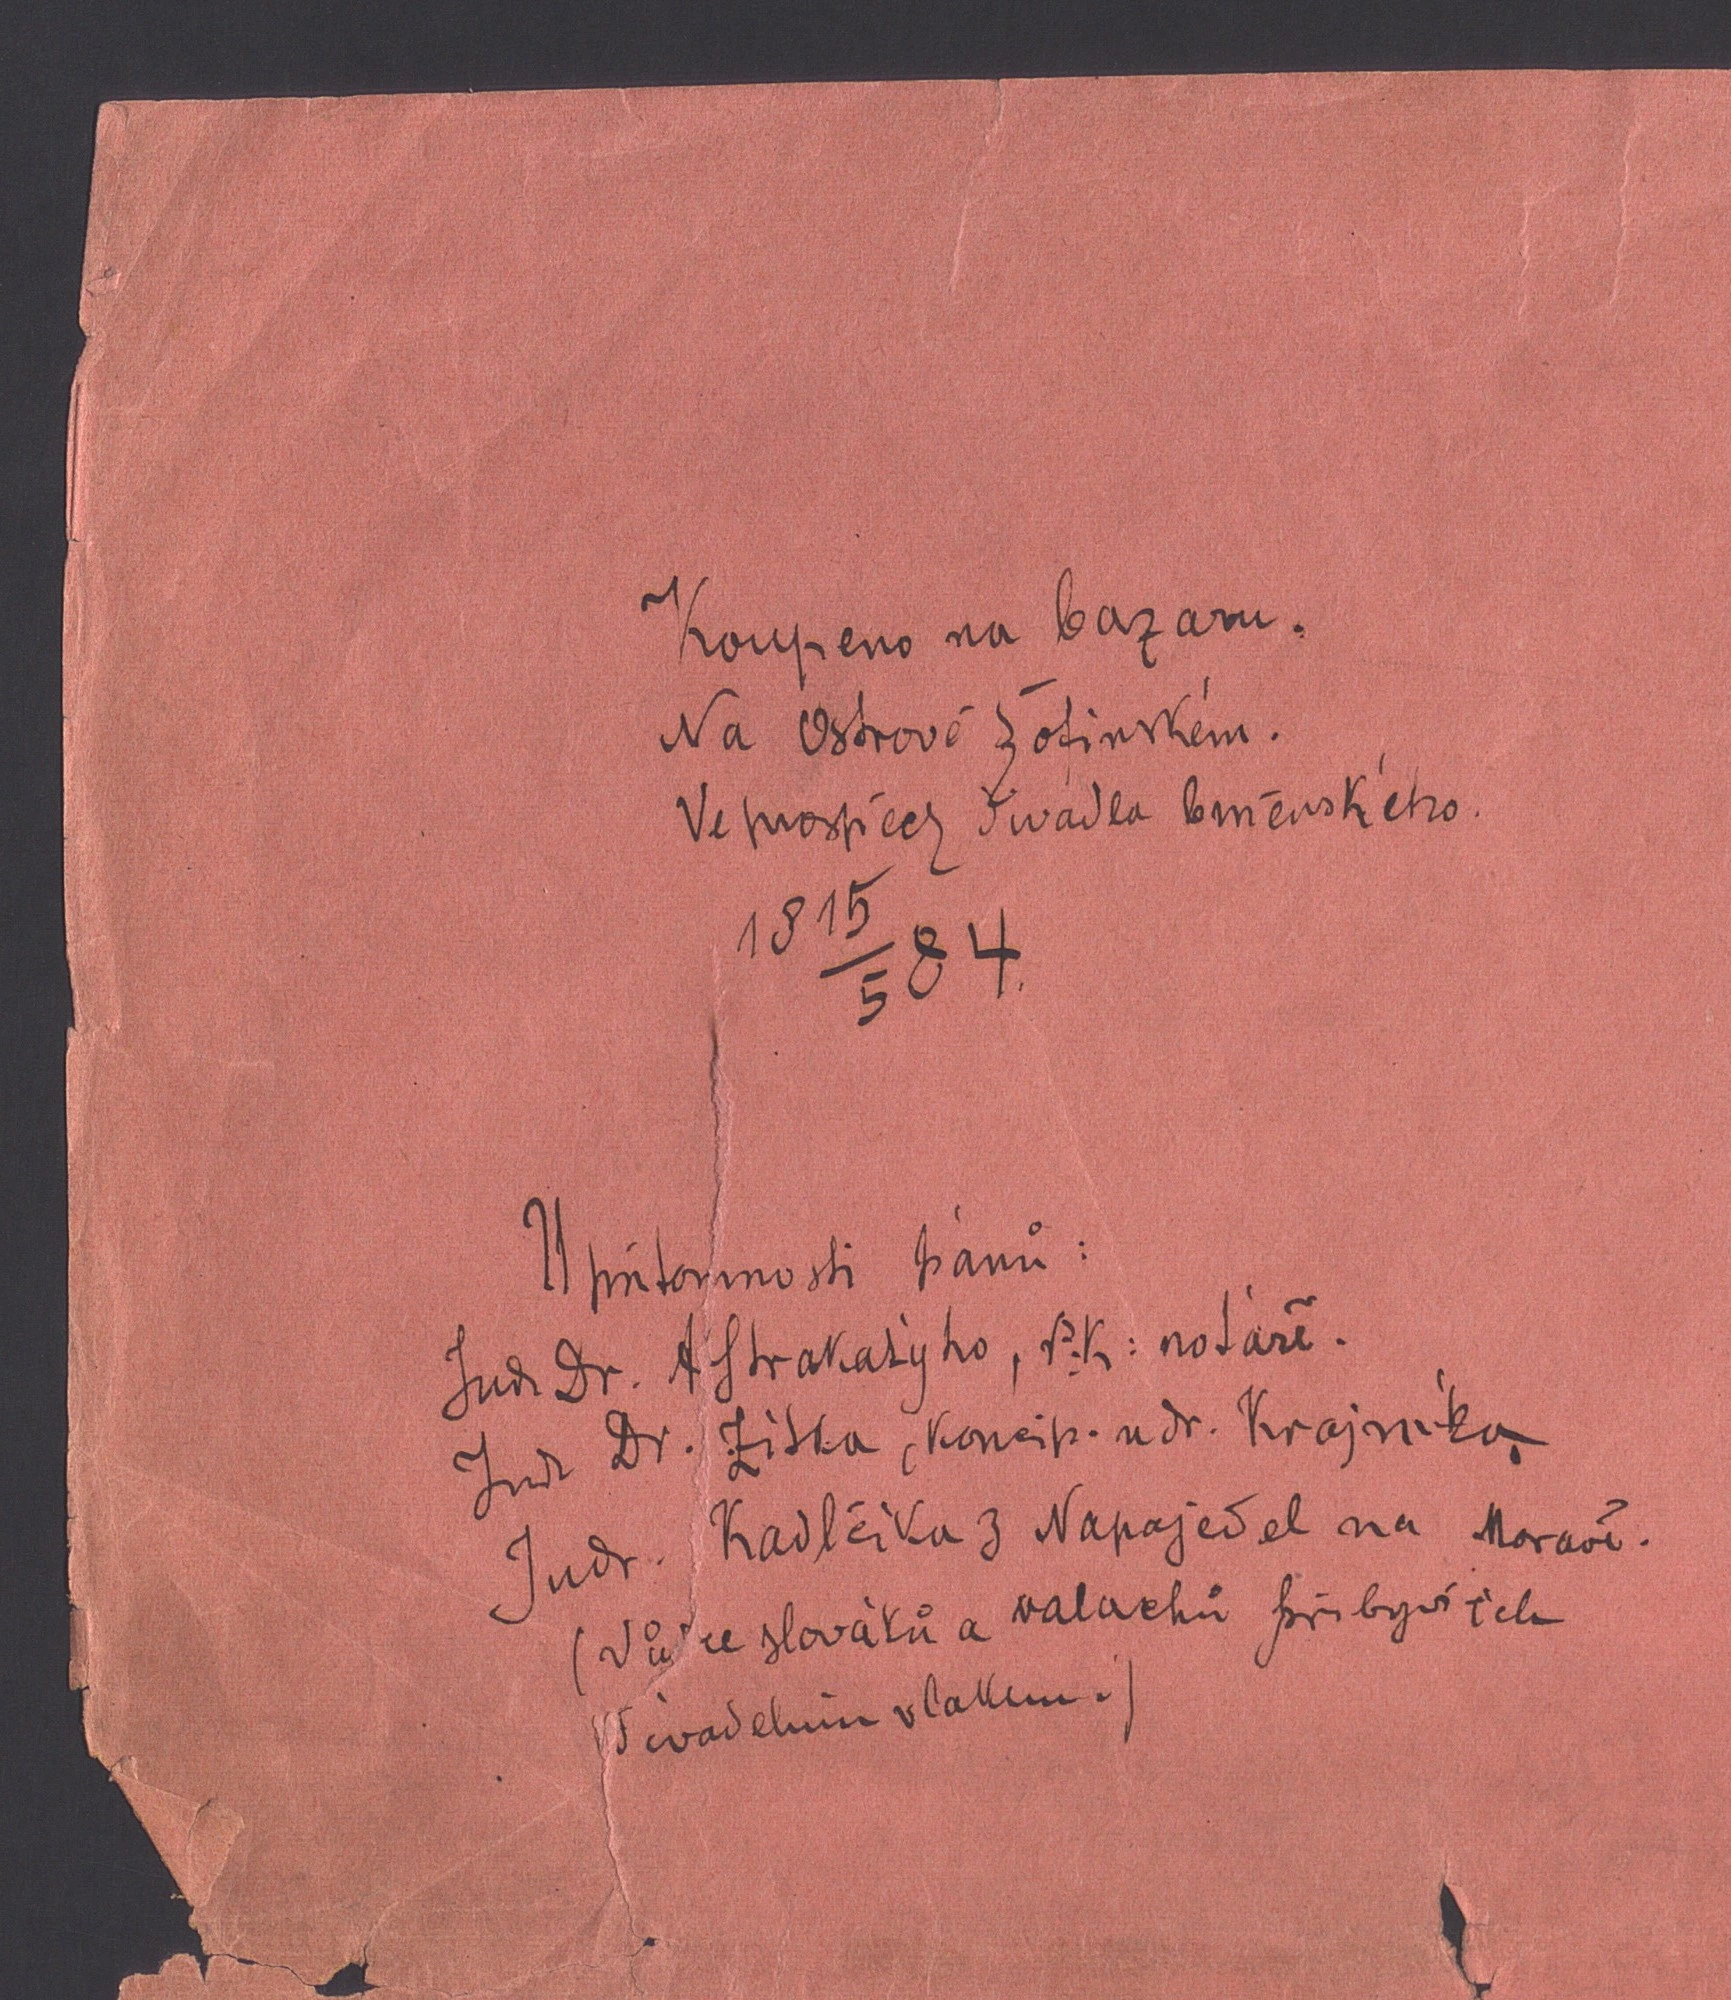 Koupeno na bazaru.
Na Ostrově Žofinském.
Ve prospěch divadla brněnského.
18 15/5 84.
U přítomnosti pánů:
Judr Dr. A Strakatýho, k: notáře.
Judr Dr. Žiška, koncip. u dr. Krajníka,
Judr. Kadlčíka z Napajedel na Moravě.
(Vůdce slováků a valachů přibyvších
divadelním vlakem.)